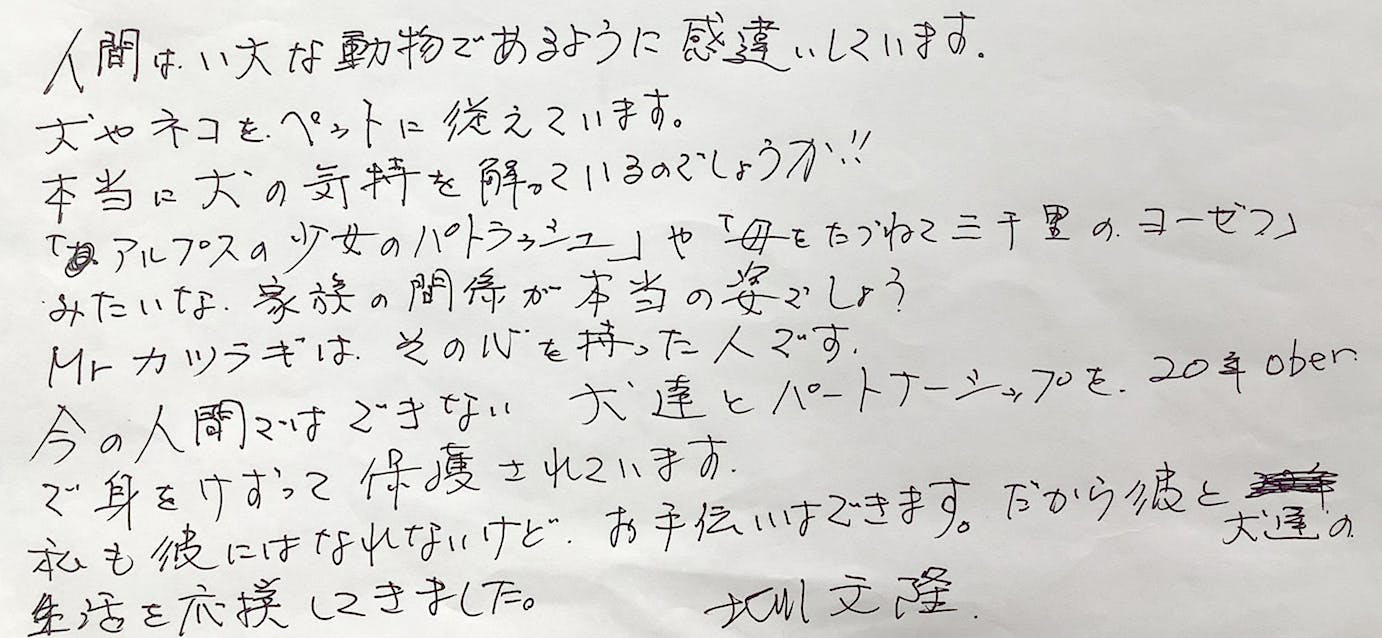 人間は、い大な動物であるように感違いしています。
犬やネコを、ペットに従えています。
本当に犬の気持を解っているのでしょうか!!
「アルプスの少女のパトラッシュ」や「母をたづねて三千里の、ヨーゼフ」
みたいな、家族の関係が本当の姿でしょう?
Mr カツラギは、その心を持った人です。
今の人間ではできない 犬達とパートナーシップを、20年 ober
で身をけずって保護されています。
私も彼にはなれないけど、お手伝いはできます。だから彼と
犬達の
生活を応援してきました。 北川文隆